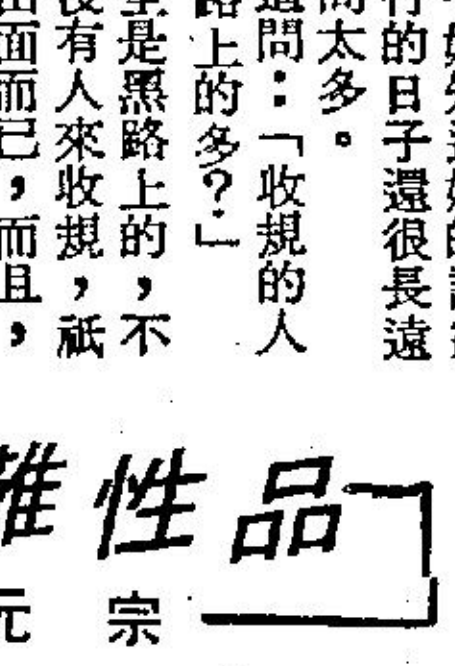 行的日子還很長遠
太多。
問：「收規的人
路上的多？」
是黑路上的，不
有人來收規，祇
面而已，而且，
品性
宗元